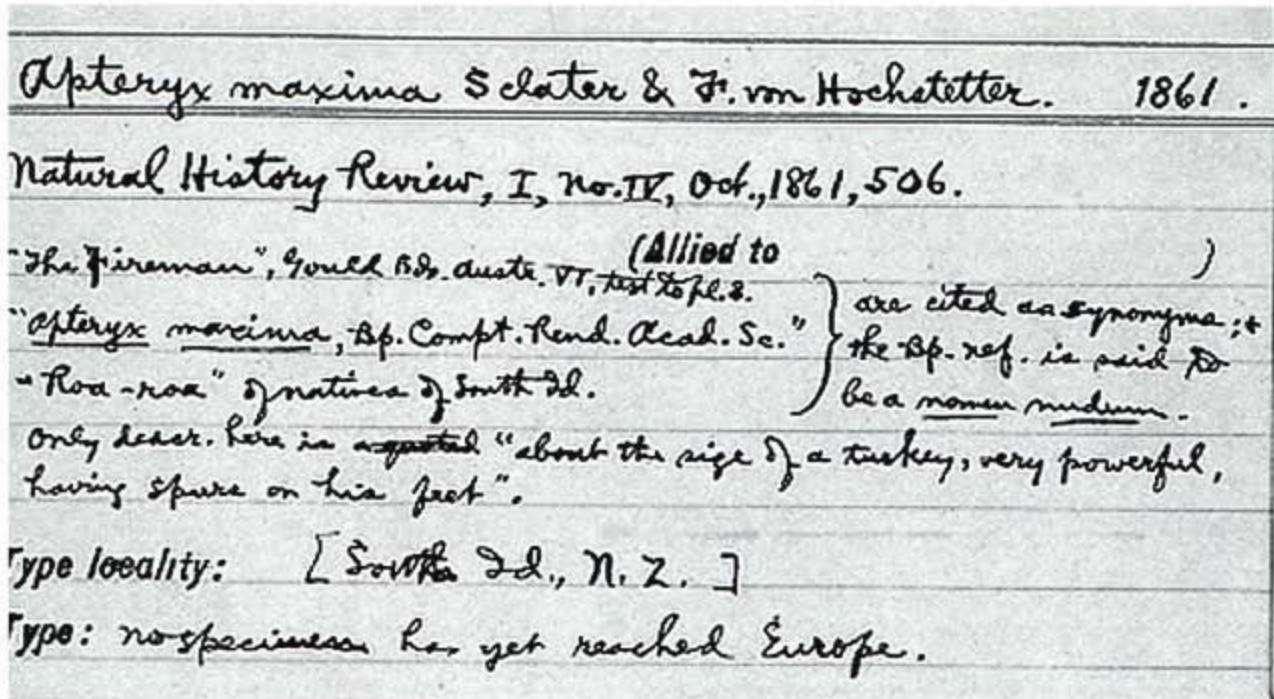 Apteryx maxima Sclater & F. von Hochstetter. 1861.
Natural History Review, I, No. IV, Oct., 1861, 506.
(Allied to )
"The Fireman", Gould Bds. Austr. VI, text to pl. 2.
"Apteryx maxima, Bp. Compt. Rend. Acad. Sc."
"Roa-roa" of natives of South Id.
are cited as synonyms; +
the Bp. ref. is said to
be a nomen nudum.
Only descr. here is "about the size of a turkey, very powerful,
having spurs on his feet".
Type locality: [South Id., N. Z.]
Type: no specimen has yet reached Europe.